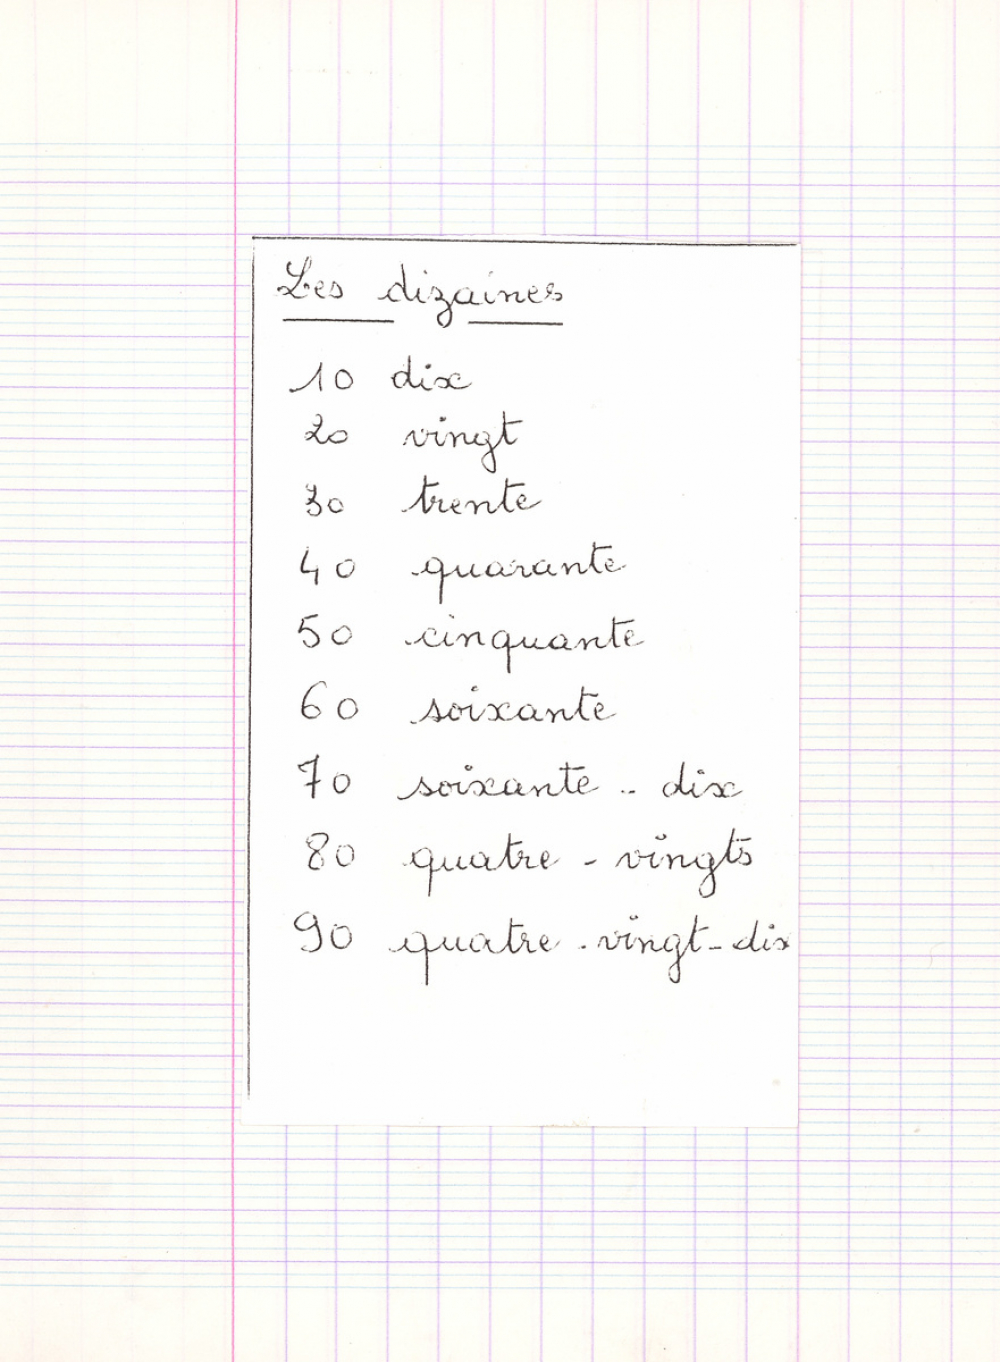 Les dizaines
10 dix
20 vingt
30 trente
40 quarante
50 cinquante
60 soixante
70 soixante-dix
80 quatre-vingts
90 quatre-vingt-dix